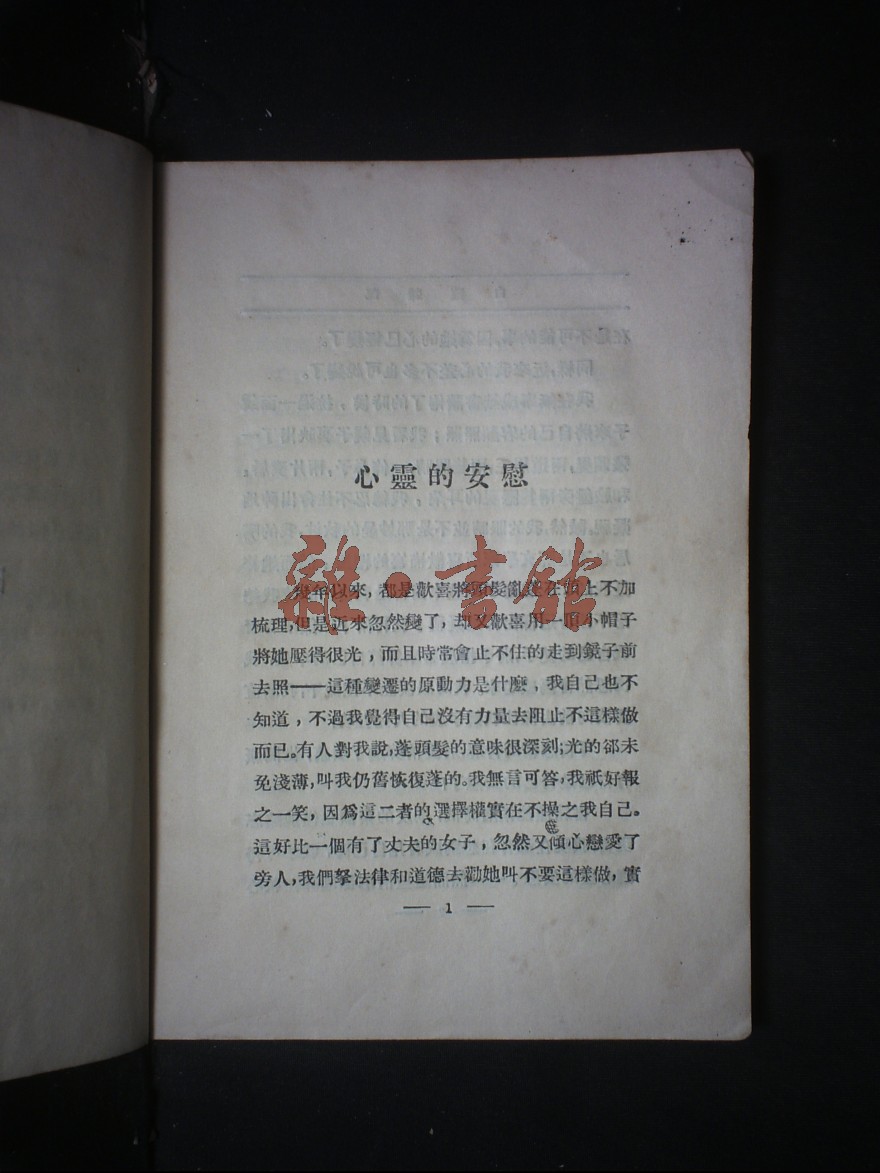 心靈的安慰
雜·書館
幾年以來，都是歡喜將頭髮亂蓬在頭上不加
梳理，但是近來忽然變了，却又歡喜用一頂小帽子
將她壓得很光，而且時常會止不住的走到鏡子前
去照——這種變遷的原動力是什麼，我自己也不
知道，不過我覺得自己沒有力量去阻止不這樣做
而已。有人對我說，蓬頭髮的意味很深刻；光的卻未
免淺薄，叫我仍舊恢復蓬的。我無言可答，我祇好報
之一笑，因爲這二者的選擇權實在不操之我自己。
這好比一個有了丈夫的女子，忽然又傾心戀愛了
旁人，我們拏法律和道德去勸她叫不要這樣做，實
— 1 —